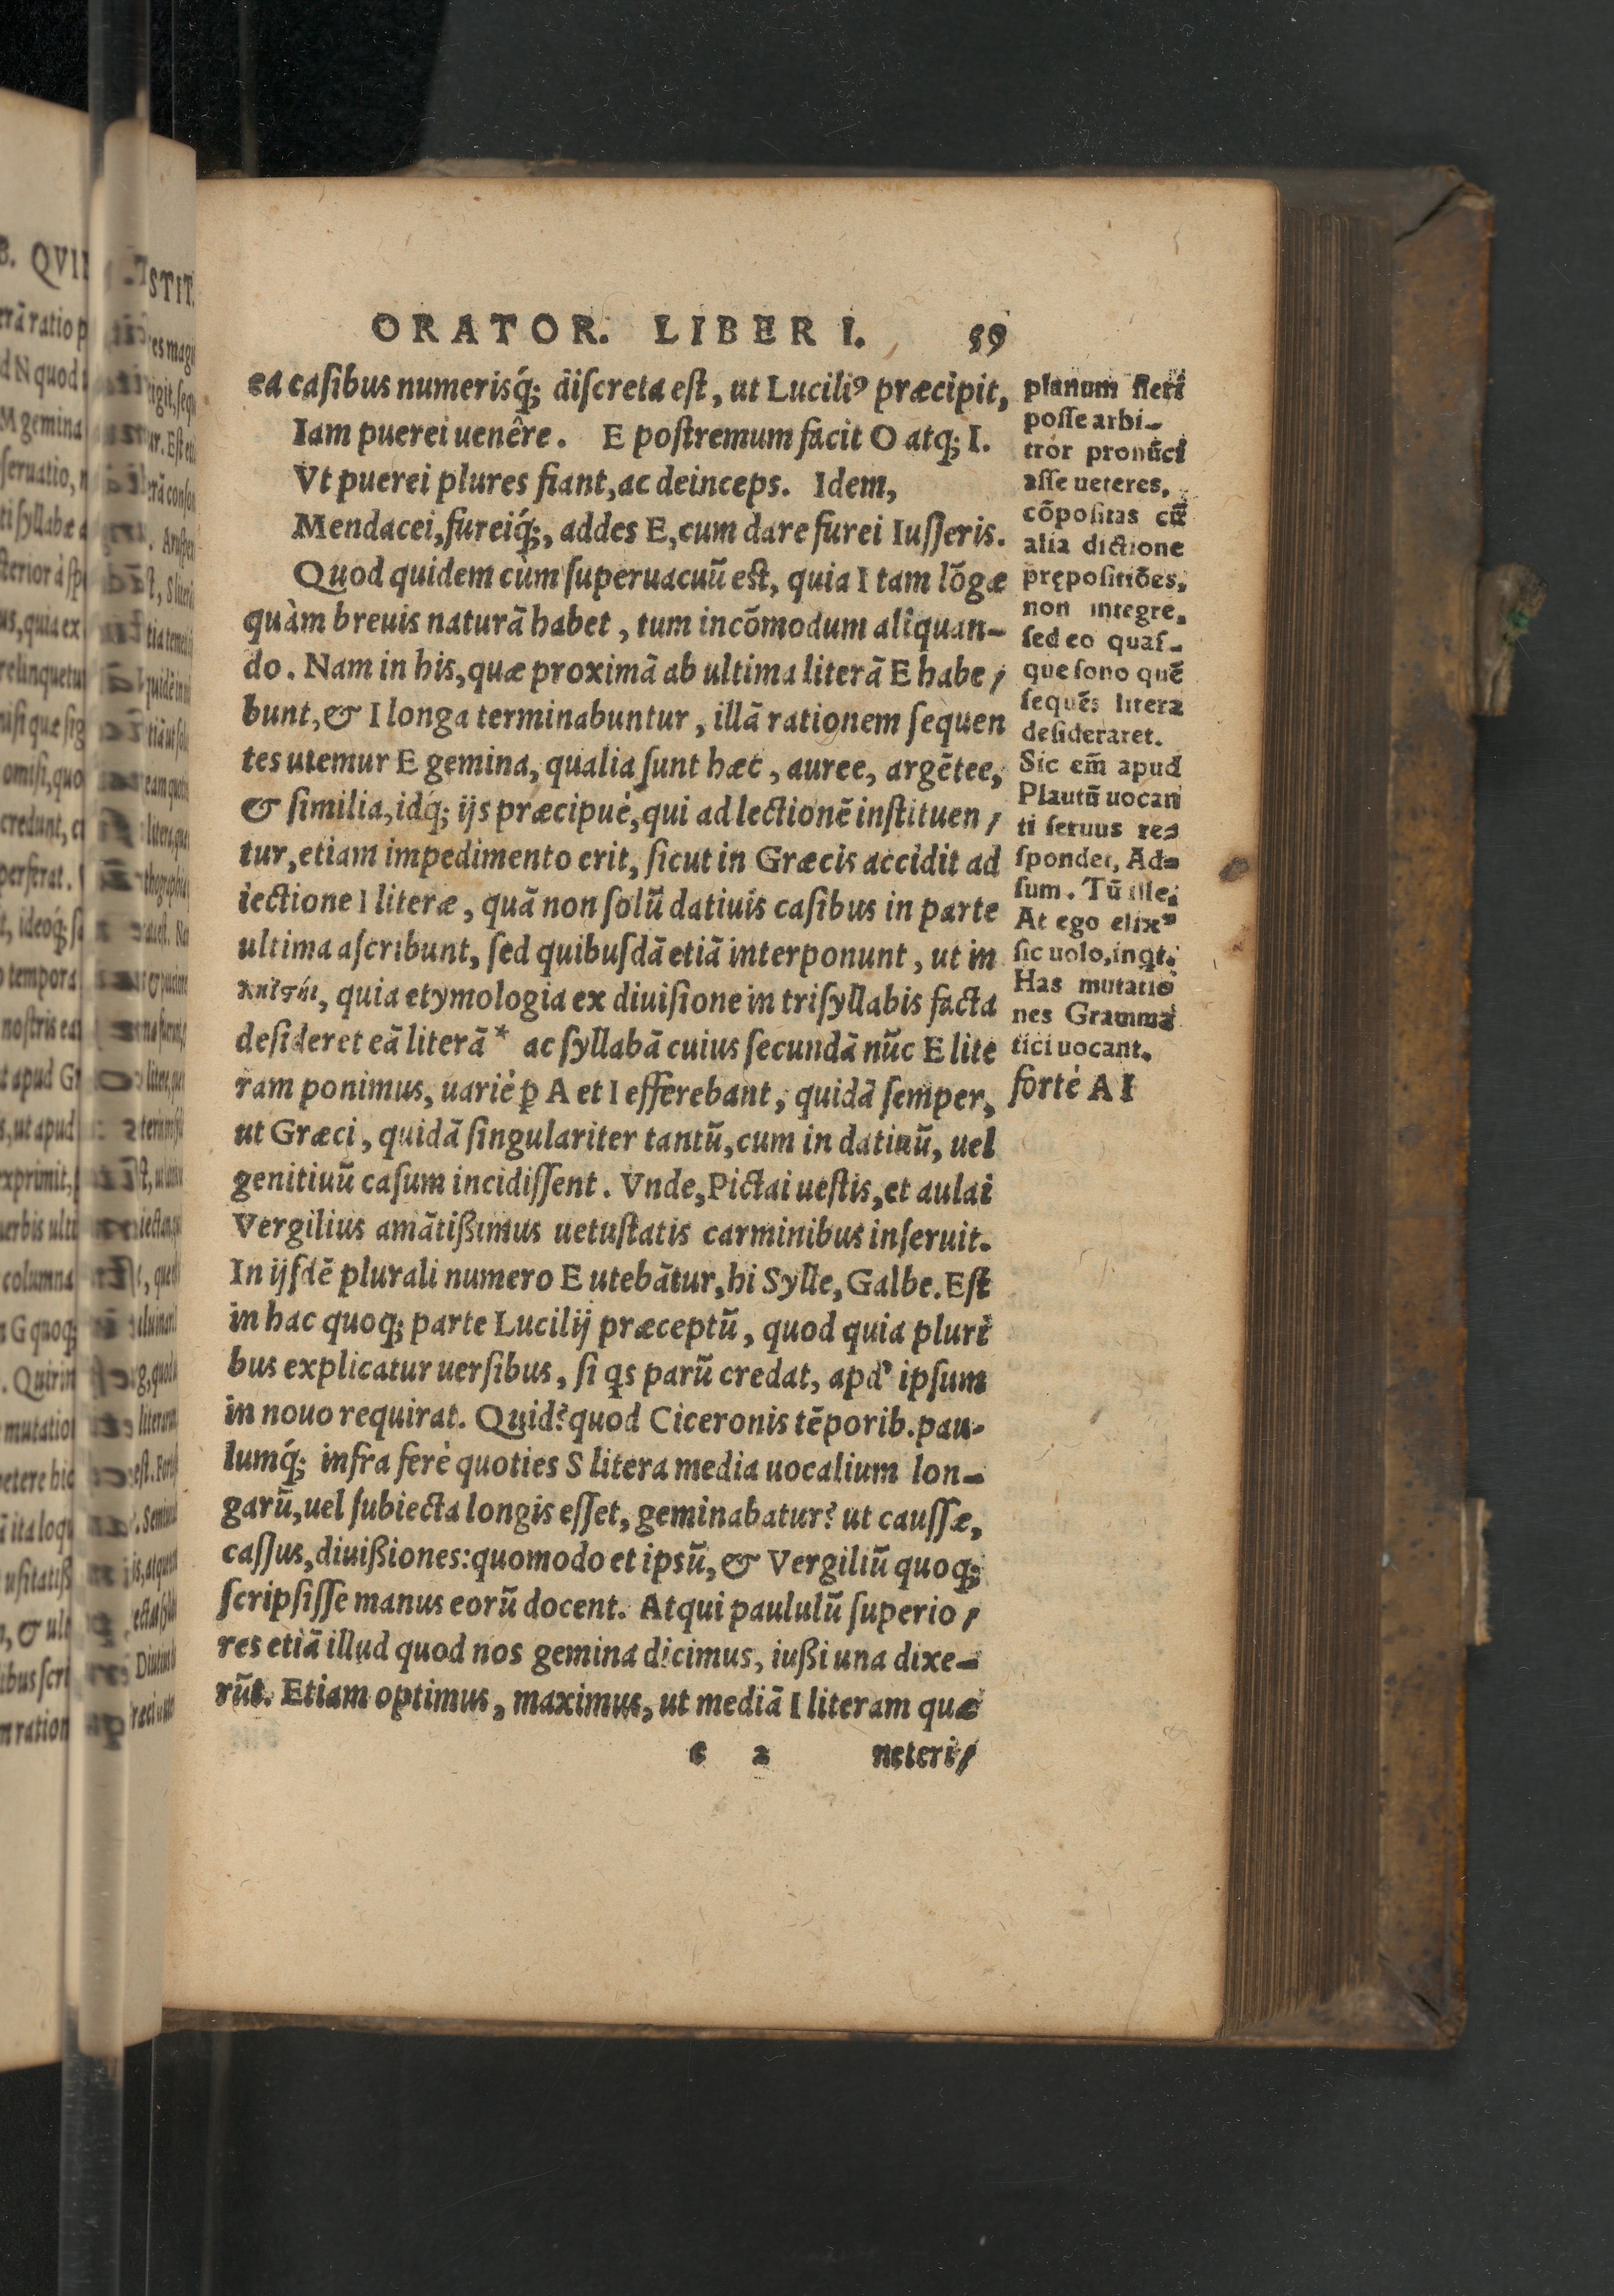 ORATOR. LIBER I. 59
ea casibus numerisq́; discreta est, ut Luciliꝰ præcipit,
Iam puerei uenêre. E postremum facit O atq; I.
Vt puerei plures fiant, ac deinceps. Idem,
Mendacei, fureiq́;, addes E, cum dare furei Iusseris.
Quod quidem cùm superuacuũ est, quia I tam lõgæ
quàm breuis naturã habet, tum incõmodum aliquan-
do. Nam in his, quæ proximã ab ultima literã E habe/
bunt, & I longa terminabuntur, illã rationem sequen
tes utemur E gemina, qualia sunt hæc, auree, argẽtee,
& similia, idq́; ijs præcipuè, qui ad lectionẽ instituen/
tur, etiam impedimento erit, sicut in Græcis accidit ad
iectione I literæ, quã non solũ datiuis casibus in parte
ultima ascribunt, sed quibusdã etiã interponunt, ut in
quia etymologia ex diuisione in trisyllabis facta
desideret eã literã* ac syllabã cuius secundã nũc E lite
ram ponimus, uariè ꝑ A et I efferebant, quidã semper,
ut Græci, quidã singulariter tantũ, cum in datiuũ, uel
genitiuũ casum incidissent. Vnde, Pictai uestis, et aulai
Vergilius amãtißimus uetustatis carminibus inseruit.
In ijsdẽ plurali numero E utebãtur, hi Sylle, Galbe. Est
in hac quoq; parte Lucilij præceptũ, quod quia pluri
bus explicatur uersibus, si qs parũ credat, apd' ipsum
in nouo requirat. Quid? quod Ciceronis tẽporib. pau-
lumq́; infra ferè quoties S litera media uocalium lon-
garũ, uel subiecta longis esset, geminabatur? ut caussæ,
cassus, diuißiones: quomodo et ipsũ, & Vergiliũ quoq;
scripsisse manus eorũ docent. Atqui paululũ superio/
res etiã illud quod nos gemina dicimus, iußi una dixe-
rũt. Etiam optimus, maximus, ut mediã I literam quæ
e 2 ueteri/
planum fieri
posse arbi-
tror pronũci
asse ueteres,
cõpositas cũ
alia dictione
prępositiões,
non integre,
sed eo quas-
que sono quẽ
sequẽs litera
desideraret.
Sic em̃ apud
Plautũ uocan
ti seruus re-
spondet, Ad-
sum. Tũ ille,
At ego elixꝰ
sic uolo, inqt.
Has mutatio
nes Gramma
tici uocant.
fortè A I